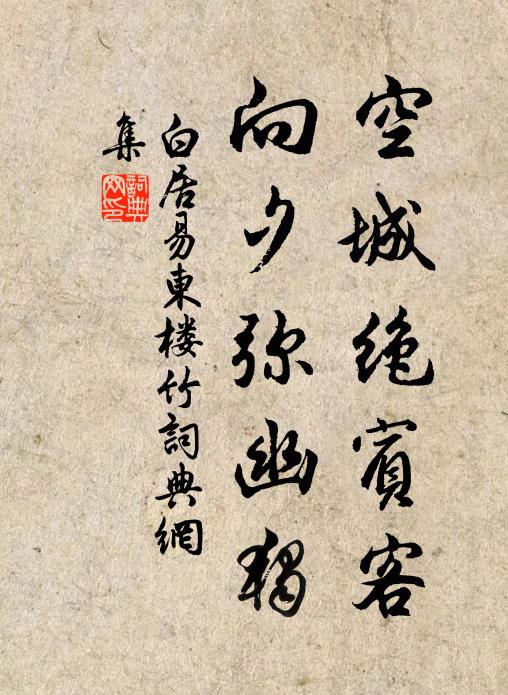 空城绝賓客
向夕弥幽獨
白居易東楼竹詞典網
集
詞典
网印